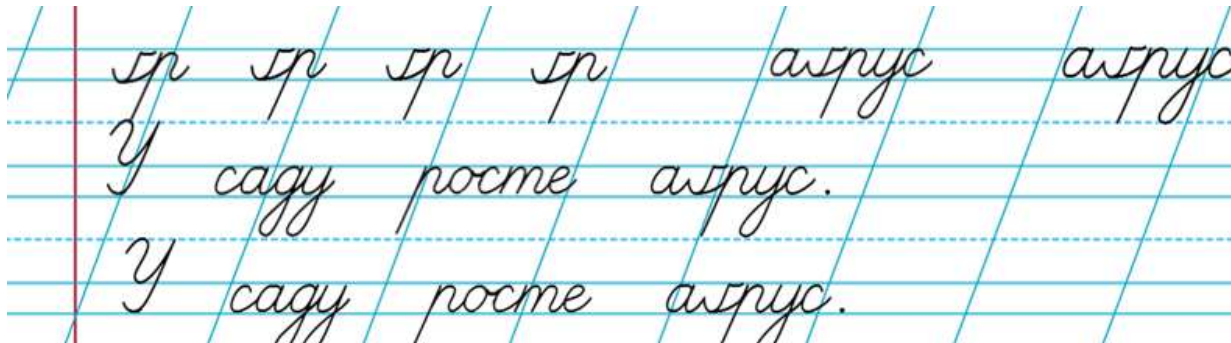 ґр ґр ґр ґр аґрус аґрус
У саду росте аґрус.
У саду росте аґрус.